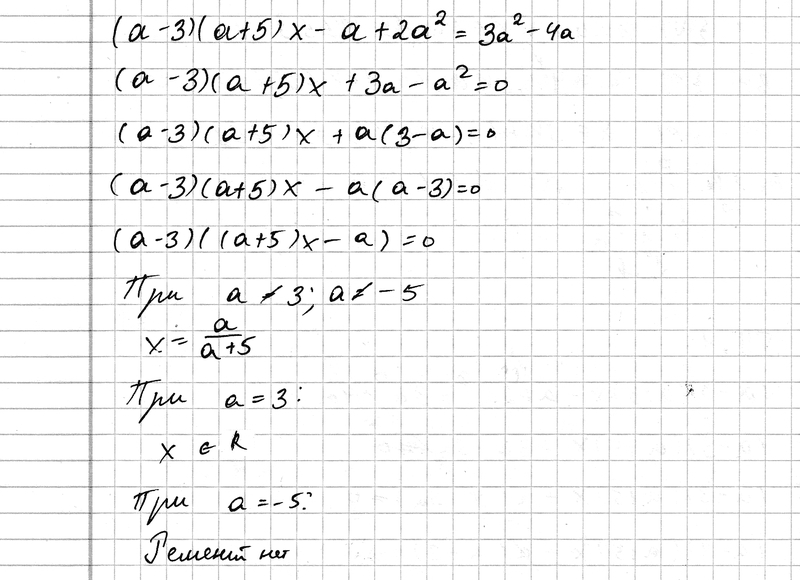 (a-3)(a+5)x - a + 2a² = 3a² - 4a
(a-3)(a+5)x + 3a - a² = 0
(a-3)(a+5)x + a(3-a) = 0
(a-3)(a+5)x - a(a-3) = 0
(a-3)((a+5)x - a) = 0
При a ≠ 3; a ≠ -5
x = a/(a+5)
При a = 3:
x ∈ R
При a = -5:
Решений нет